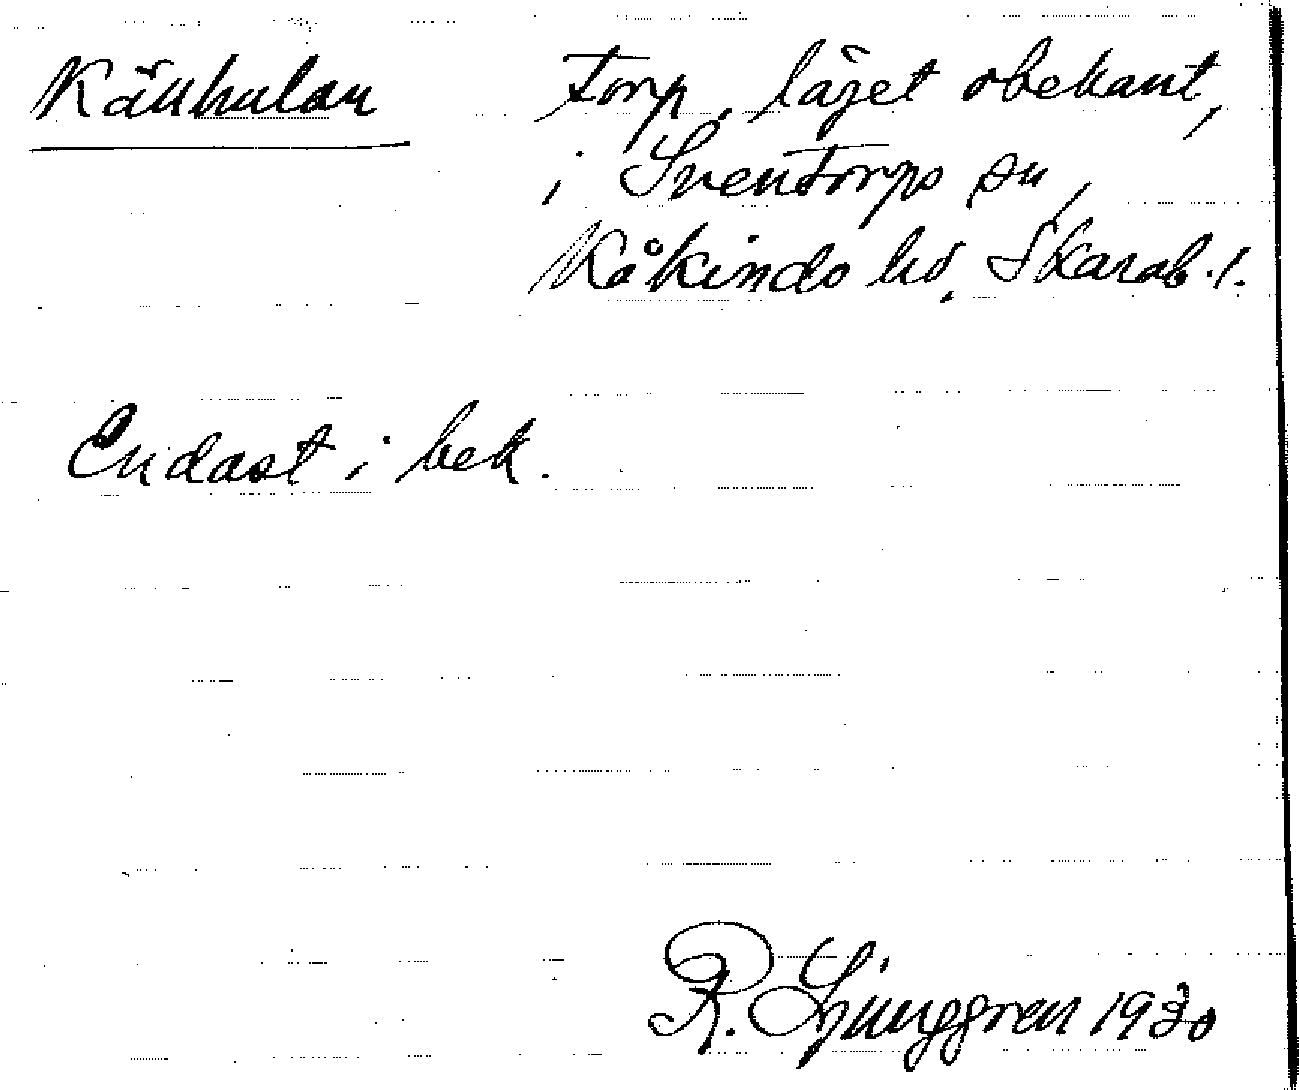 Känhulan
torp, läget obekant,
i Sventorps sn,
Kåkinds hd, Skarab.l.
Endast i bek.
R. Ljunggren 1930